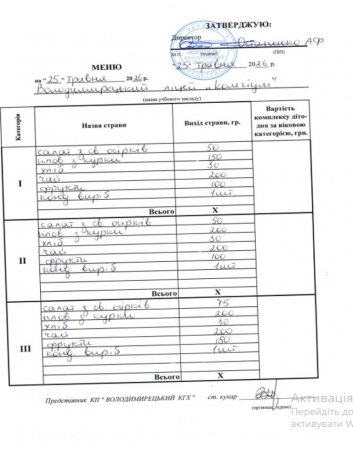 ЗАТВЕРДЖУЮ:
Директор Остапенко А.Ф
М.П. (підпис) (ПІП)
МЕНЮ "25" травня 2026 р.
на "25" травня 2026 р.
Володимирецький ліцей "Колегіум"
(назва учбового закладу)
Категорія Назва страви Вихід страви, гр. Вартість комплексу діто-дня за віковою категорією, грн.
I
салат з св. огірків 50
плов з курки 150
хліб 30
чай 200
фрукти 100
конд. виріб 1 шт.
Всього X
II
салат з св. огірків 50
плов з курки 200
хліб 30
чай 200
фрукти 100
конд. виріб 1 шт
Всього X
III
салат з св. огірків 75
плов з курки 200
хліб 30
чай 200
фрукти 150
конд. виріб 1 шт.
Всього X
Представник КП " ВОЛОДИМИРЕЦЬКИЙ КГХ " ст. кухар
(прізвище, підпис)
Активація
Перейдіть до
активувати W